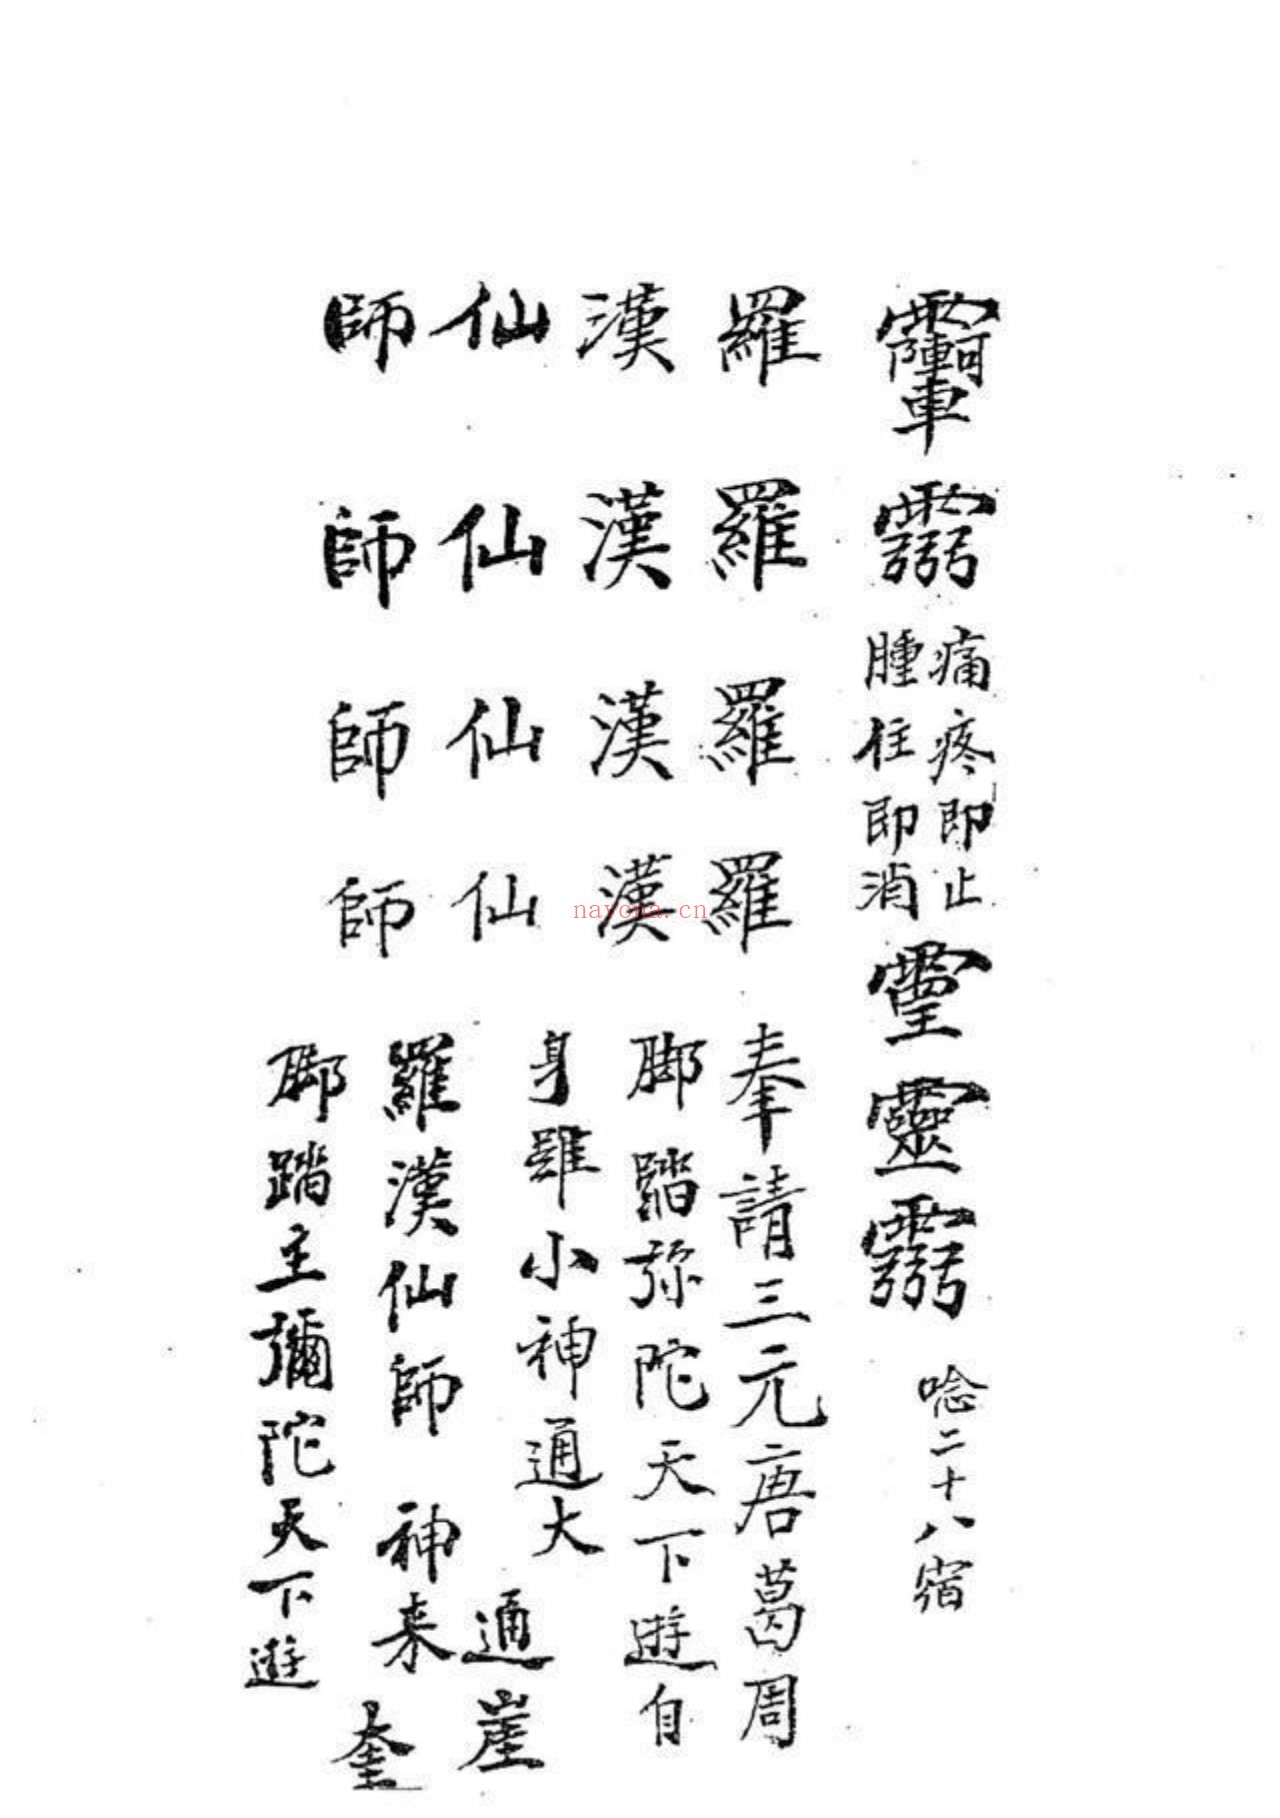 痛疼即止
腫住即消
靈
唸二十八宿
羅羅羅羅奉請三元唐葛周
漢漢漢漢脚踏弥陀天下遊自
仙仙仙仙身雖小神通大
通崖
師師師師羅漢仙師 神来
奎
脚踏主彌陀天下遊
nayona.cn